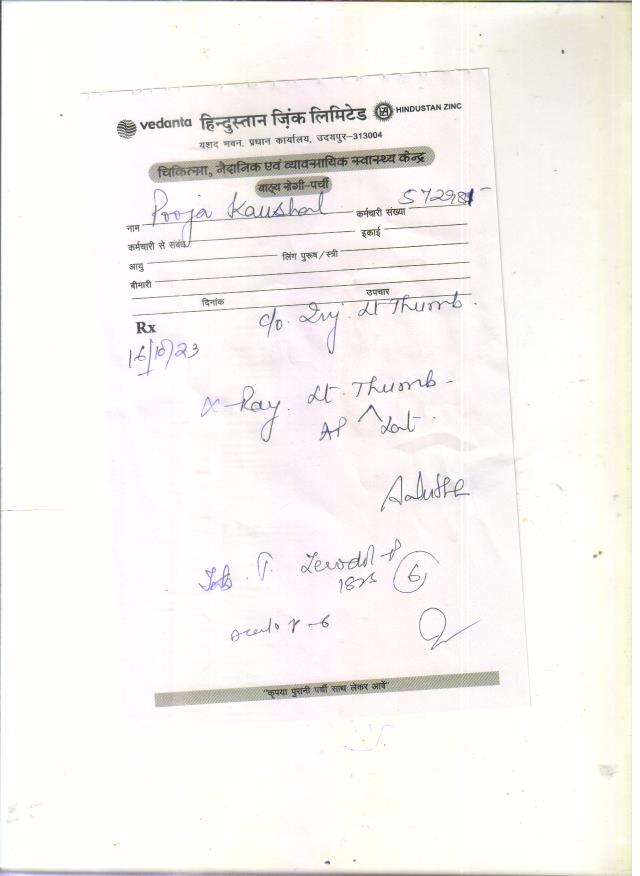 vedanta हिन्दुस्तान ज़िंक लिमिटेड HINDUSTAN ZINC
यशद भवन, प्रधान कार्यालय, उदयपुर–313004
चिकित्सा, नैदानिक एवं व्यावसायिक स्वास्थ्य केन्द्र
बाह्य रोगी-पर्ची
नाम Pooja Kaushal कर्मचारी संख्या
कर्मचारी से संबंध इकाई
आयु लिंग पुरूष/स्त्री
बीमारी
दिनांक उपचार
Rx c/o. Inj. Lt Thumb.
16/10/23
X-Ray. Lt. Thumb-
AP Lat.
Tab. T.
6
"कृपया पुरानी पर्ची साथ लेकर आवें"